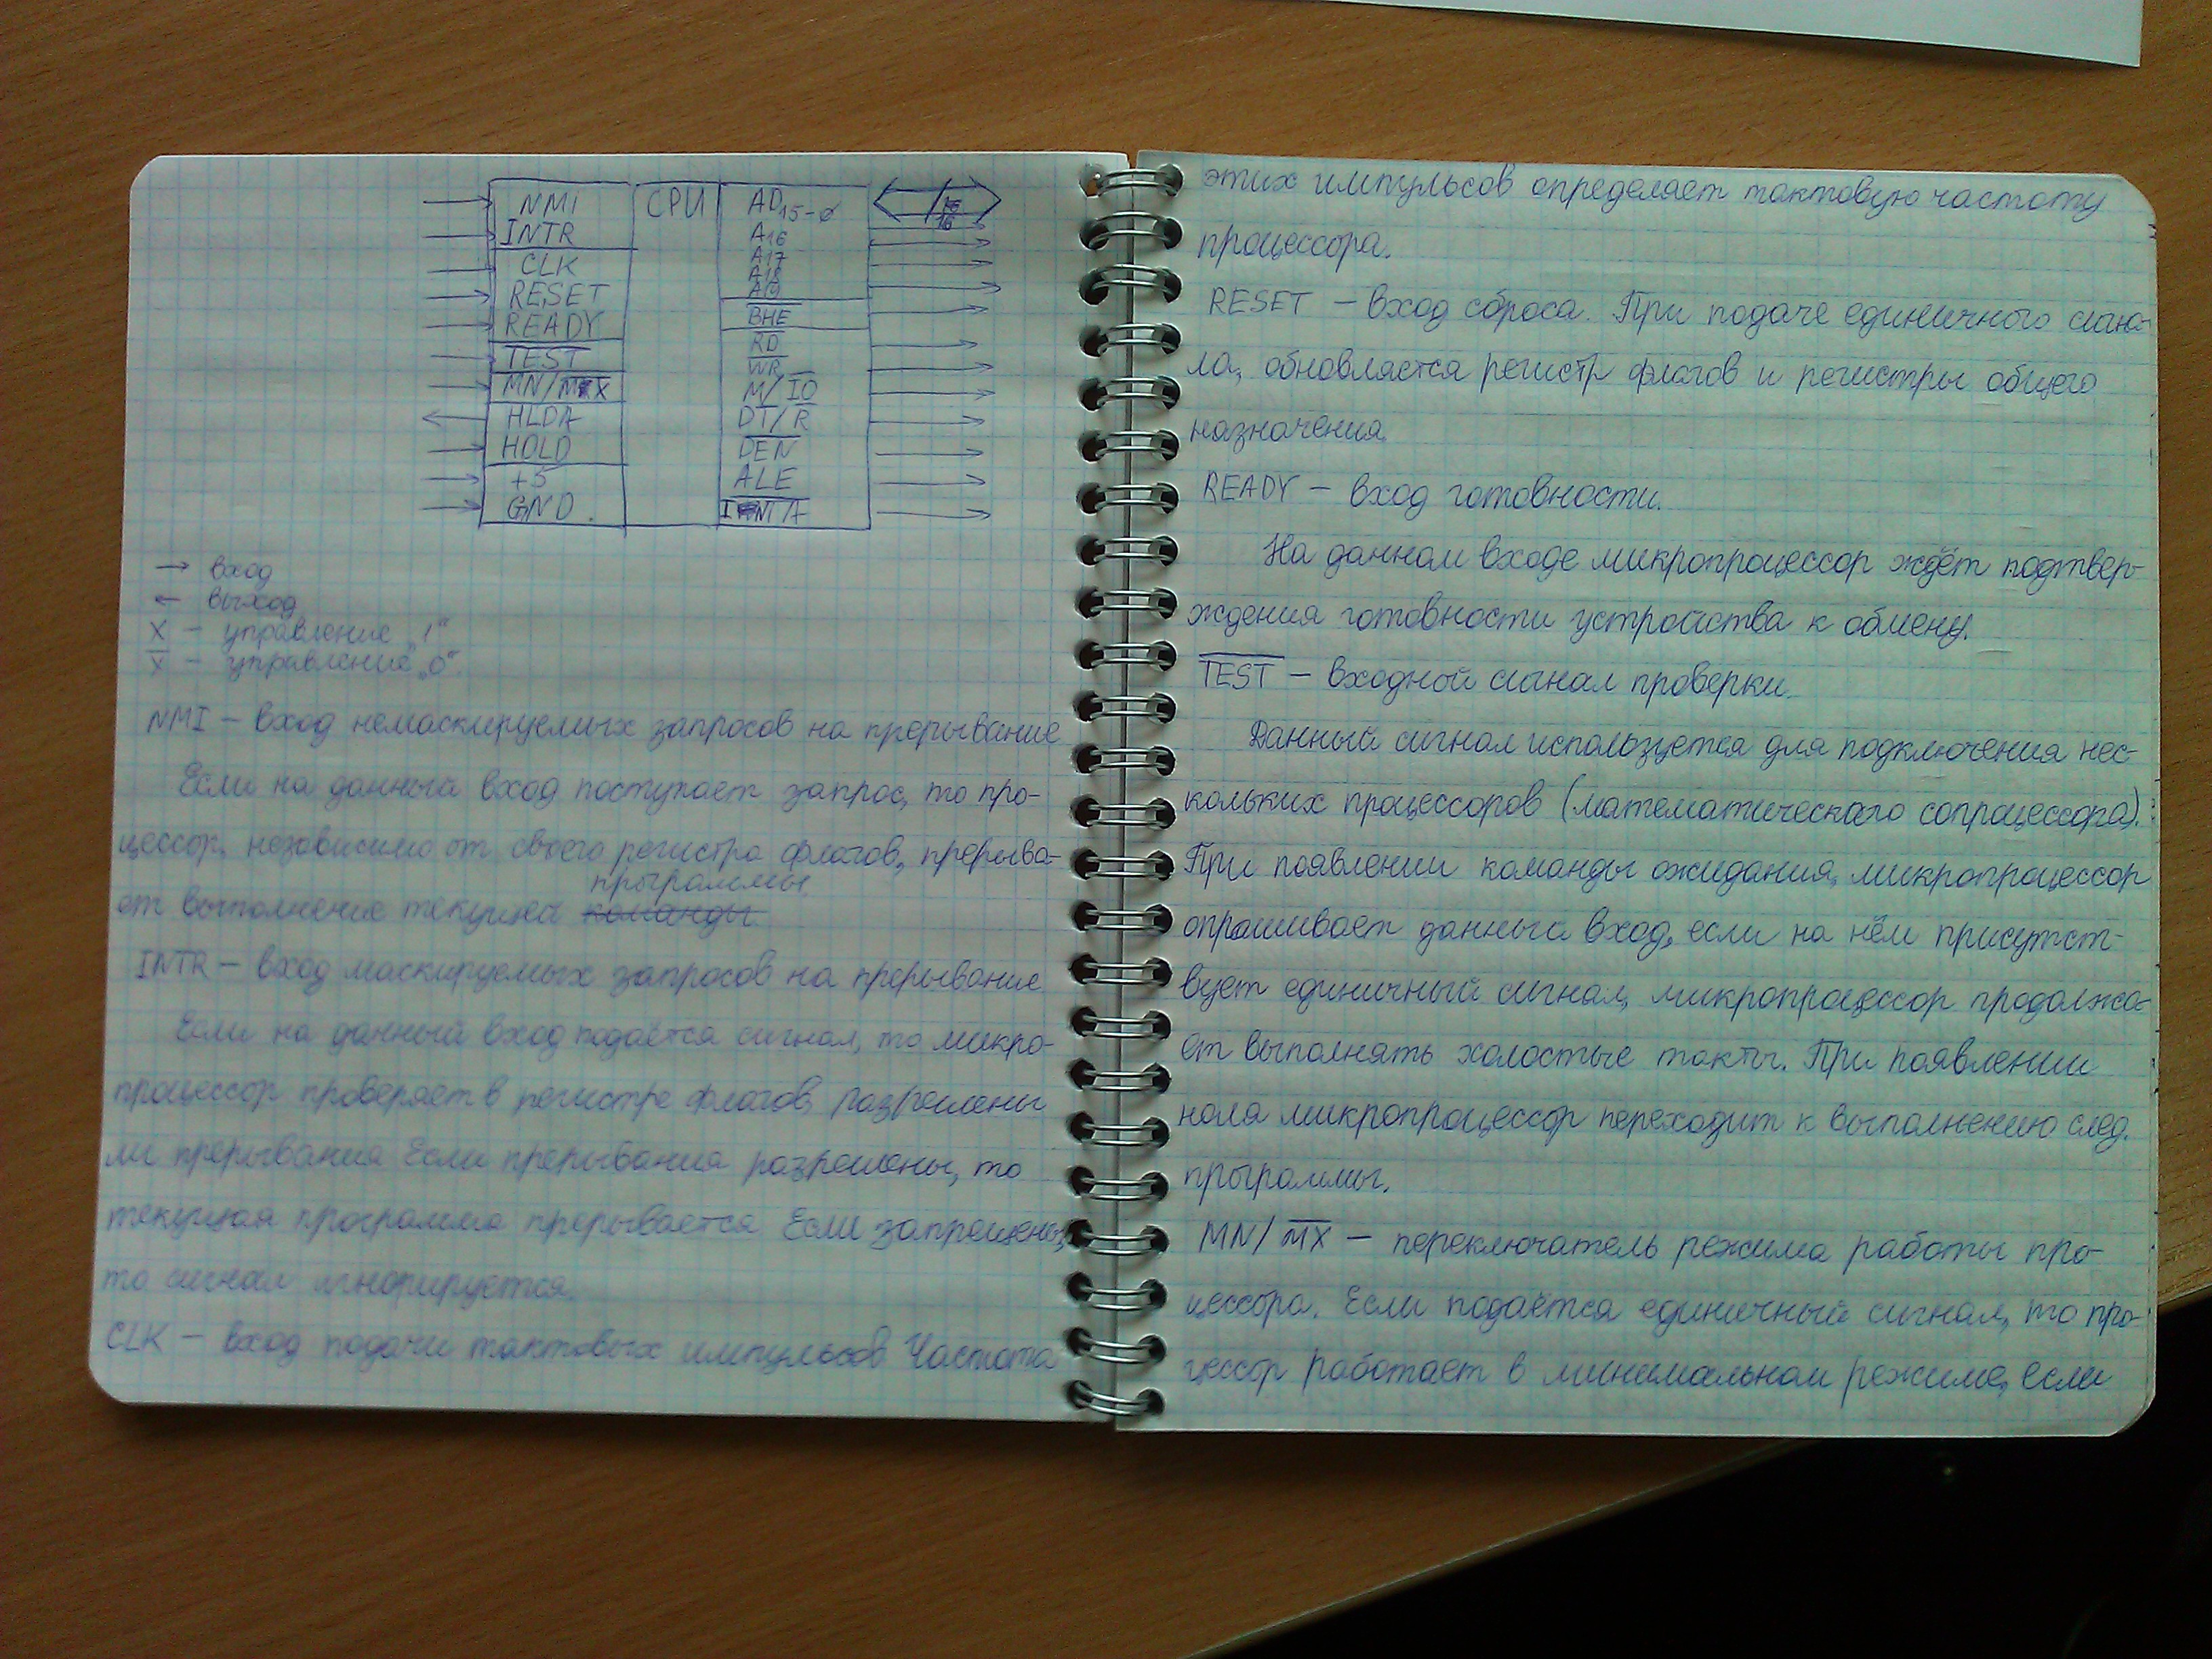 NMI CPU AD15-0 16
INTR A16
CLK A17
A18
RESET A19
READY B̅H̅E̅
T̅E̅S̅T̅ R̅D̅
W̅R̅
MN/M̅X̅ M/I̅O̅
HLDA DT/R̅
HOLD D̅E̅N̅
+5 ALE
GND. I̅N̅T̅A̅
→ вход
← выход
X – управление „1“
X̅ – управление „0“
NMI – вход немаскируемых запросов на прерывание
Если на данный вход поступает запрос, то про-
цессор, независимо от своего регистра флагов, прерыва-
программы
ет выполнение текущей команды.
INTR – вход маскируемых запросов на прерывание
Если на данный вход подаётся сигнал, то микро-
процессор проверяет в регистре флагов, разрешены
ли прерывания Если прерывания разрешены, то
текущая программа прерывается Если запрещены,
то сигнал игнорируется.
CLK – вход подачи тактовых импульсов Частота
этих импульсов определяет тактовую частоту
процессора.
RESET – вход сброса. При подаче единичного сигна-
ла, обновляется регистр флагов и регистры общего
назначения.
READY – вход готовности.
На данном входе микропроцессор ждёт подтвер-
ждения готовности устройства к обмену.
T̅E̅S̅T̅ – входной сигнал проверки.
Данный сигнал используется для подключения нес-
кольких процессоров (математического сопроцессора).
При появлении команды ожидания, микропроцессор
опрашивает данный вход, если на нём присутст-
вует единичный сигнал, микропроцессор продолжа-
ет выполнять холостые такты. При появлении
ноля микропроцессор переходит к выполнению след.
программы.
MN/M̅X̅ – переключатель режима работы про-
цессора. Если подаётся единичный сигнал, то про-
цессор работает в минимальном режиме, если